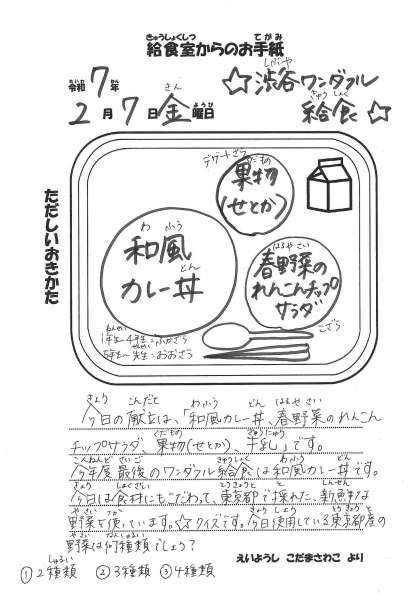 きゅうしょくしつ てがみ
給食室からのお手紙
れいわ ねん
令和7年
しぶや
☆渋谷ワンダフル
きゅうしょく
給食☆
きん ようび
2月7日金曜日
ただしいおきかた
デザートざら
くだもの
果物
(せとか)
わ ふう
和風
どん
カレー丼
はるやさい
春野菜の
れんこんチップ
サラダ
こざら
1年生~4年生:ふかざら
5年生~先生:おおざら
きょう こんだて わふう どん はるやさい
今日の献立は、「和風カレー丼、春野菜のれんこん
くだもの ぎゅうにゅう
チップサラダ 果物(せとか)、牛乳」です。
こんねんど さいご きゅうしょく わふう どん
今年度最後のワンダフル給食は和風カレー丼です。
きょう しょくざい とうきょうと と しんせん
今日は食材にもこだわって、東京都で採れた、新鮮な
やさい つか きょう しよう とうきょうとさん
野菜を使っています。☆クイズです。今日使用している東京都産の
やさい なんしゅるい
野菜は何種類でしょう?
しゅるい
①2種類 ②3種類 ③4種類
えいようし こだまさわこ より